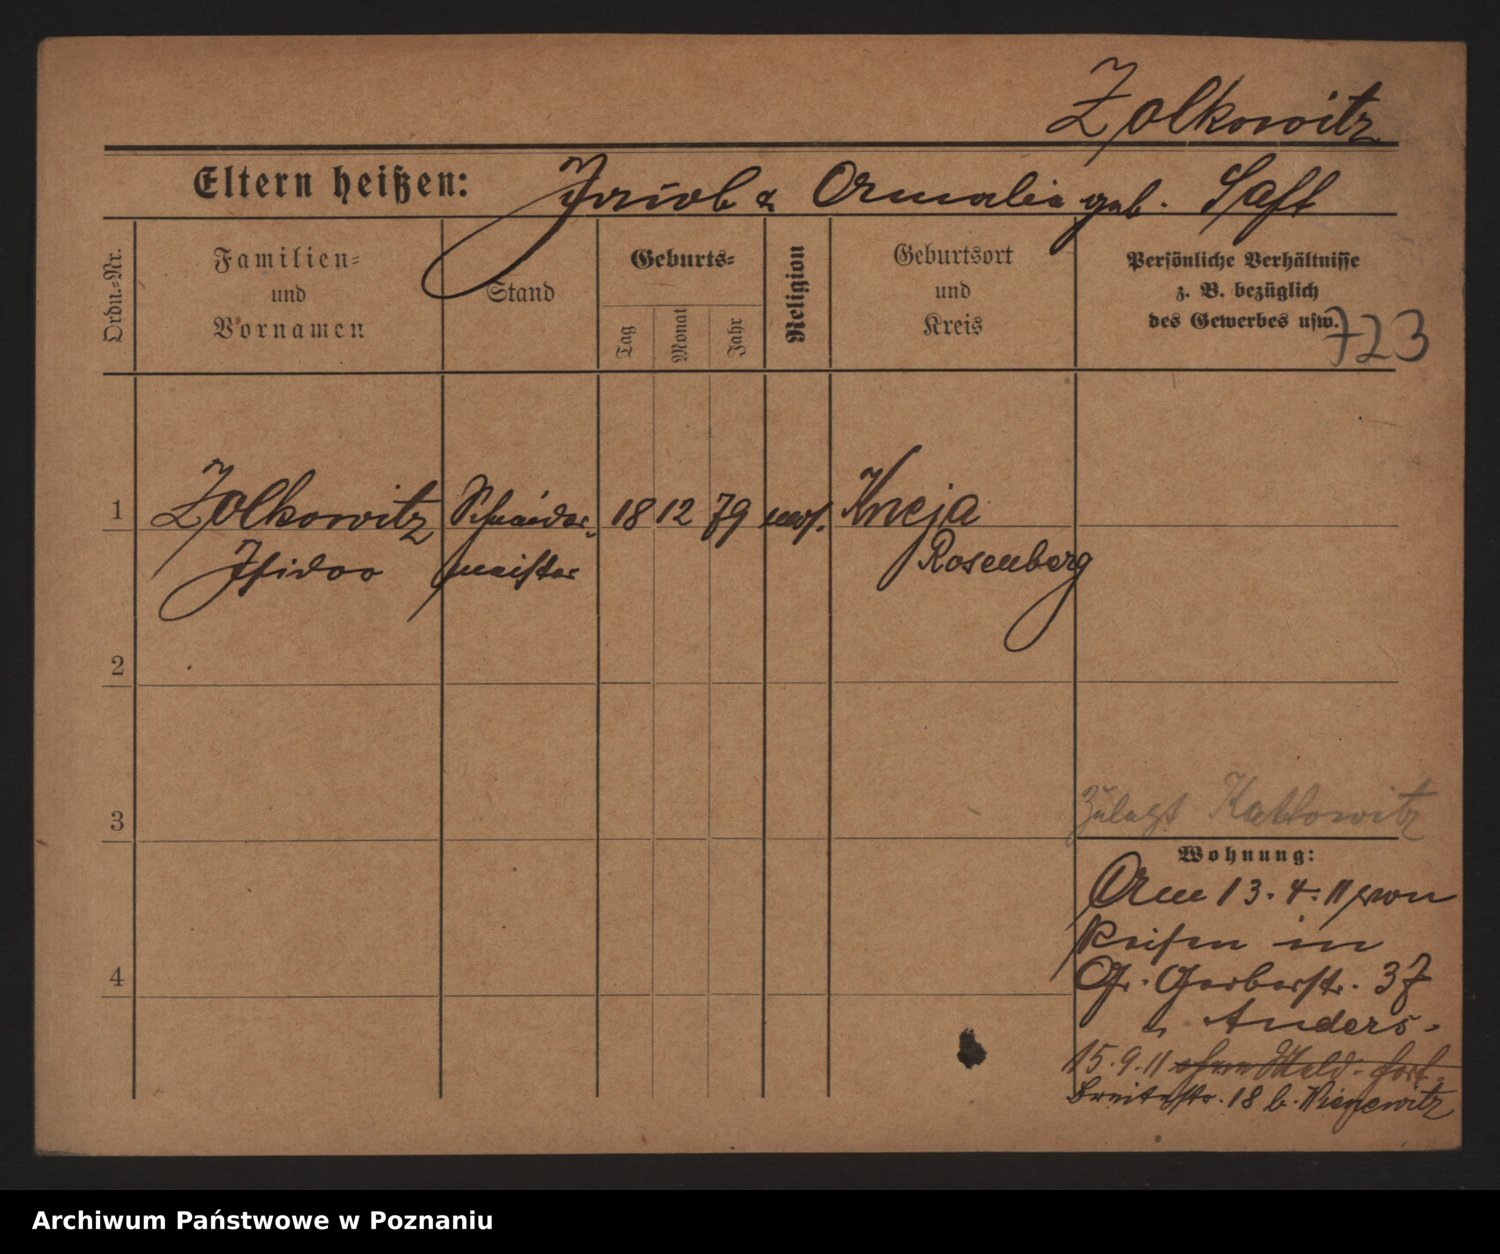 Zolkowitz
Eltern heißen: Jacob & Amalie geb. Saft
Ordn.-Nr.
Familien-
und
Vornamen
Stand
Geburts-
Tag
Monat
Jahr
Religion
Geburtsort
und
Kreis
Persönliche Verhältnisse
z. B. bezüglich
des Gewerbes usw.
723
1 Zolkowitz Schneider- 18 12 79 mos. Kneja
Isidor meister Rosenberg
2
3
Zuletzt Kattowitz
Wohnung:
Am 13.4.11 von
Reisen in
4
Gr. Gerberstr. 37
Anders.
15.9.11 ohne Meld. fort.
Breitestr. 18 b.
Archiwum Państwowe w Poznaniu